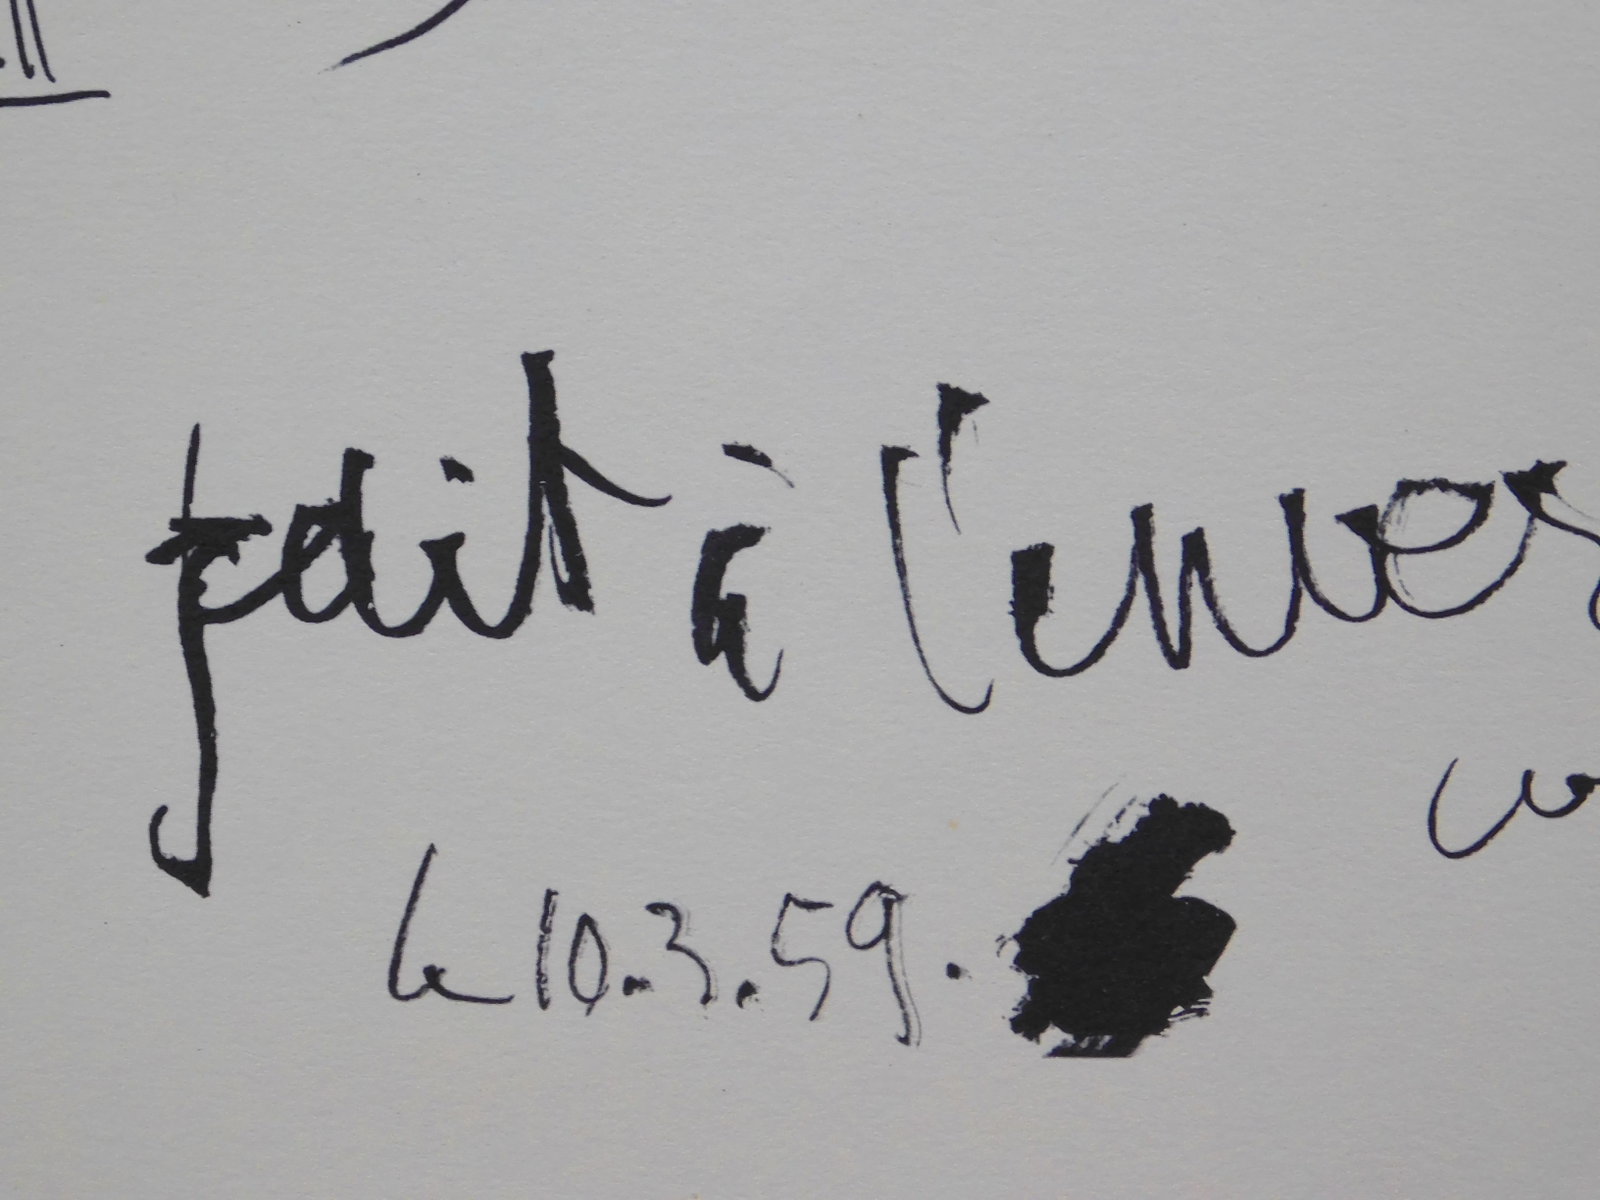 .II
fait à l'envers
le 10.3.59.